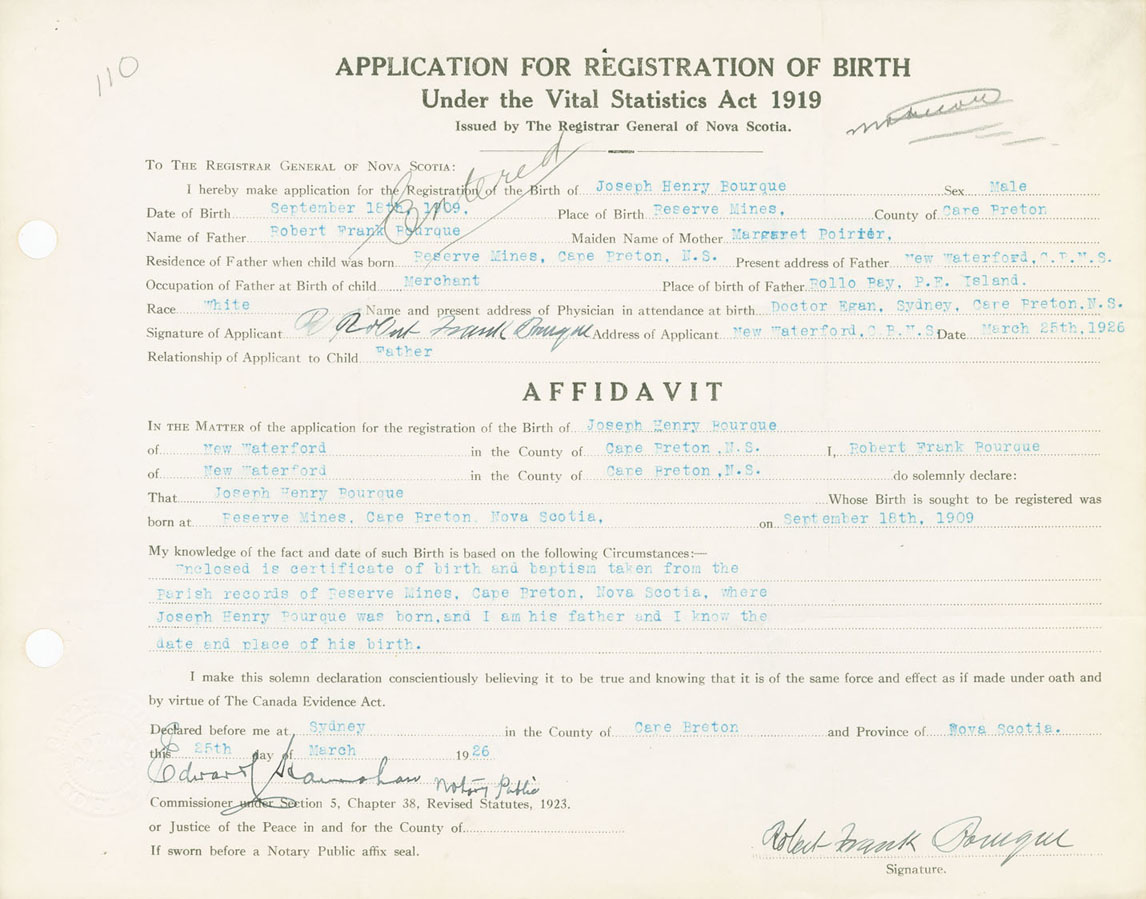 110
APPLICATION FOR REGISTRATION OF BIRTH
Under the Vital Statistics Act 1919
Issued by The Registrar General of Nova Scotia.
To The Registrar General of Nova Scotia:
Entered
I hereby make application for the Registration of the Birth of Joseph Henry Bourque Sex Male
Date of Birth September 18th, 1909, Place of Birth Reserve Mines, County of Cape Breton
Name of Father Robert Frank Bourque Maiden Name of Mother Margaret Poirier,
Residence of Father when child was born Reserve Mines, Cape Breton, N.S. Present address of Father New Waterford, C.B.N.S.
Occupation of Father at Birth of child Merchant Place of birth of Father Rollo Bay, P.E. Island.
Race White Name and present address of Physician in attendance at birth Doctor Egan, Sydney, Cape Breton, N.S.
Signature of Applicant Robert Frank Bourque Address of Applicant New Waterford, C.B.N.S Date March 25th, 1926
Relationship of Applicant to Child Father
AFFIDAVIT
In the Matter of the application for the registration of the Birth of Joseph Henry Bourque
of New Waterford in the County of Cape Breton, N.S. I, Robert Frank Bourque
of New Waterford in the County of Cape Breton, N.S. do solemnly declare:
That Joseph Henry Bourque Whose Birth is sought to be registered was
born at Reserve Mines, Cape Breton, Nova Scotia, on September 18th, 1909
My knowledge of the fact and date of such Birth is based on the following Circumstances:—
Enclosed is certificate of birth and baptism taken from the
Parish records of Reserve Mines, Cape Breton, Nova Scotia, where
Joseph Henry Bourque was born, and I am his father and I know the
date and place of his birth.
I make this solemn declaration conscientiously believing it to be true and knowing that it is of the same force and effect as if made under oath and
by virtue of The Canada Evidence Act.
Declared before me at Sydney in the County of Cape Breton and Province of Nova Scotia.
this 25th day of March 1926
Edward Notary Public
Commissioner under Section 5, Chapter 38, Revised Statutes, 1923.
or Justice of the Peace in and for the County of
If sworn before a Notary Public affix seal.
Robert Frank Bourque
Signature.